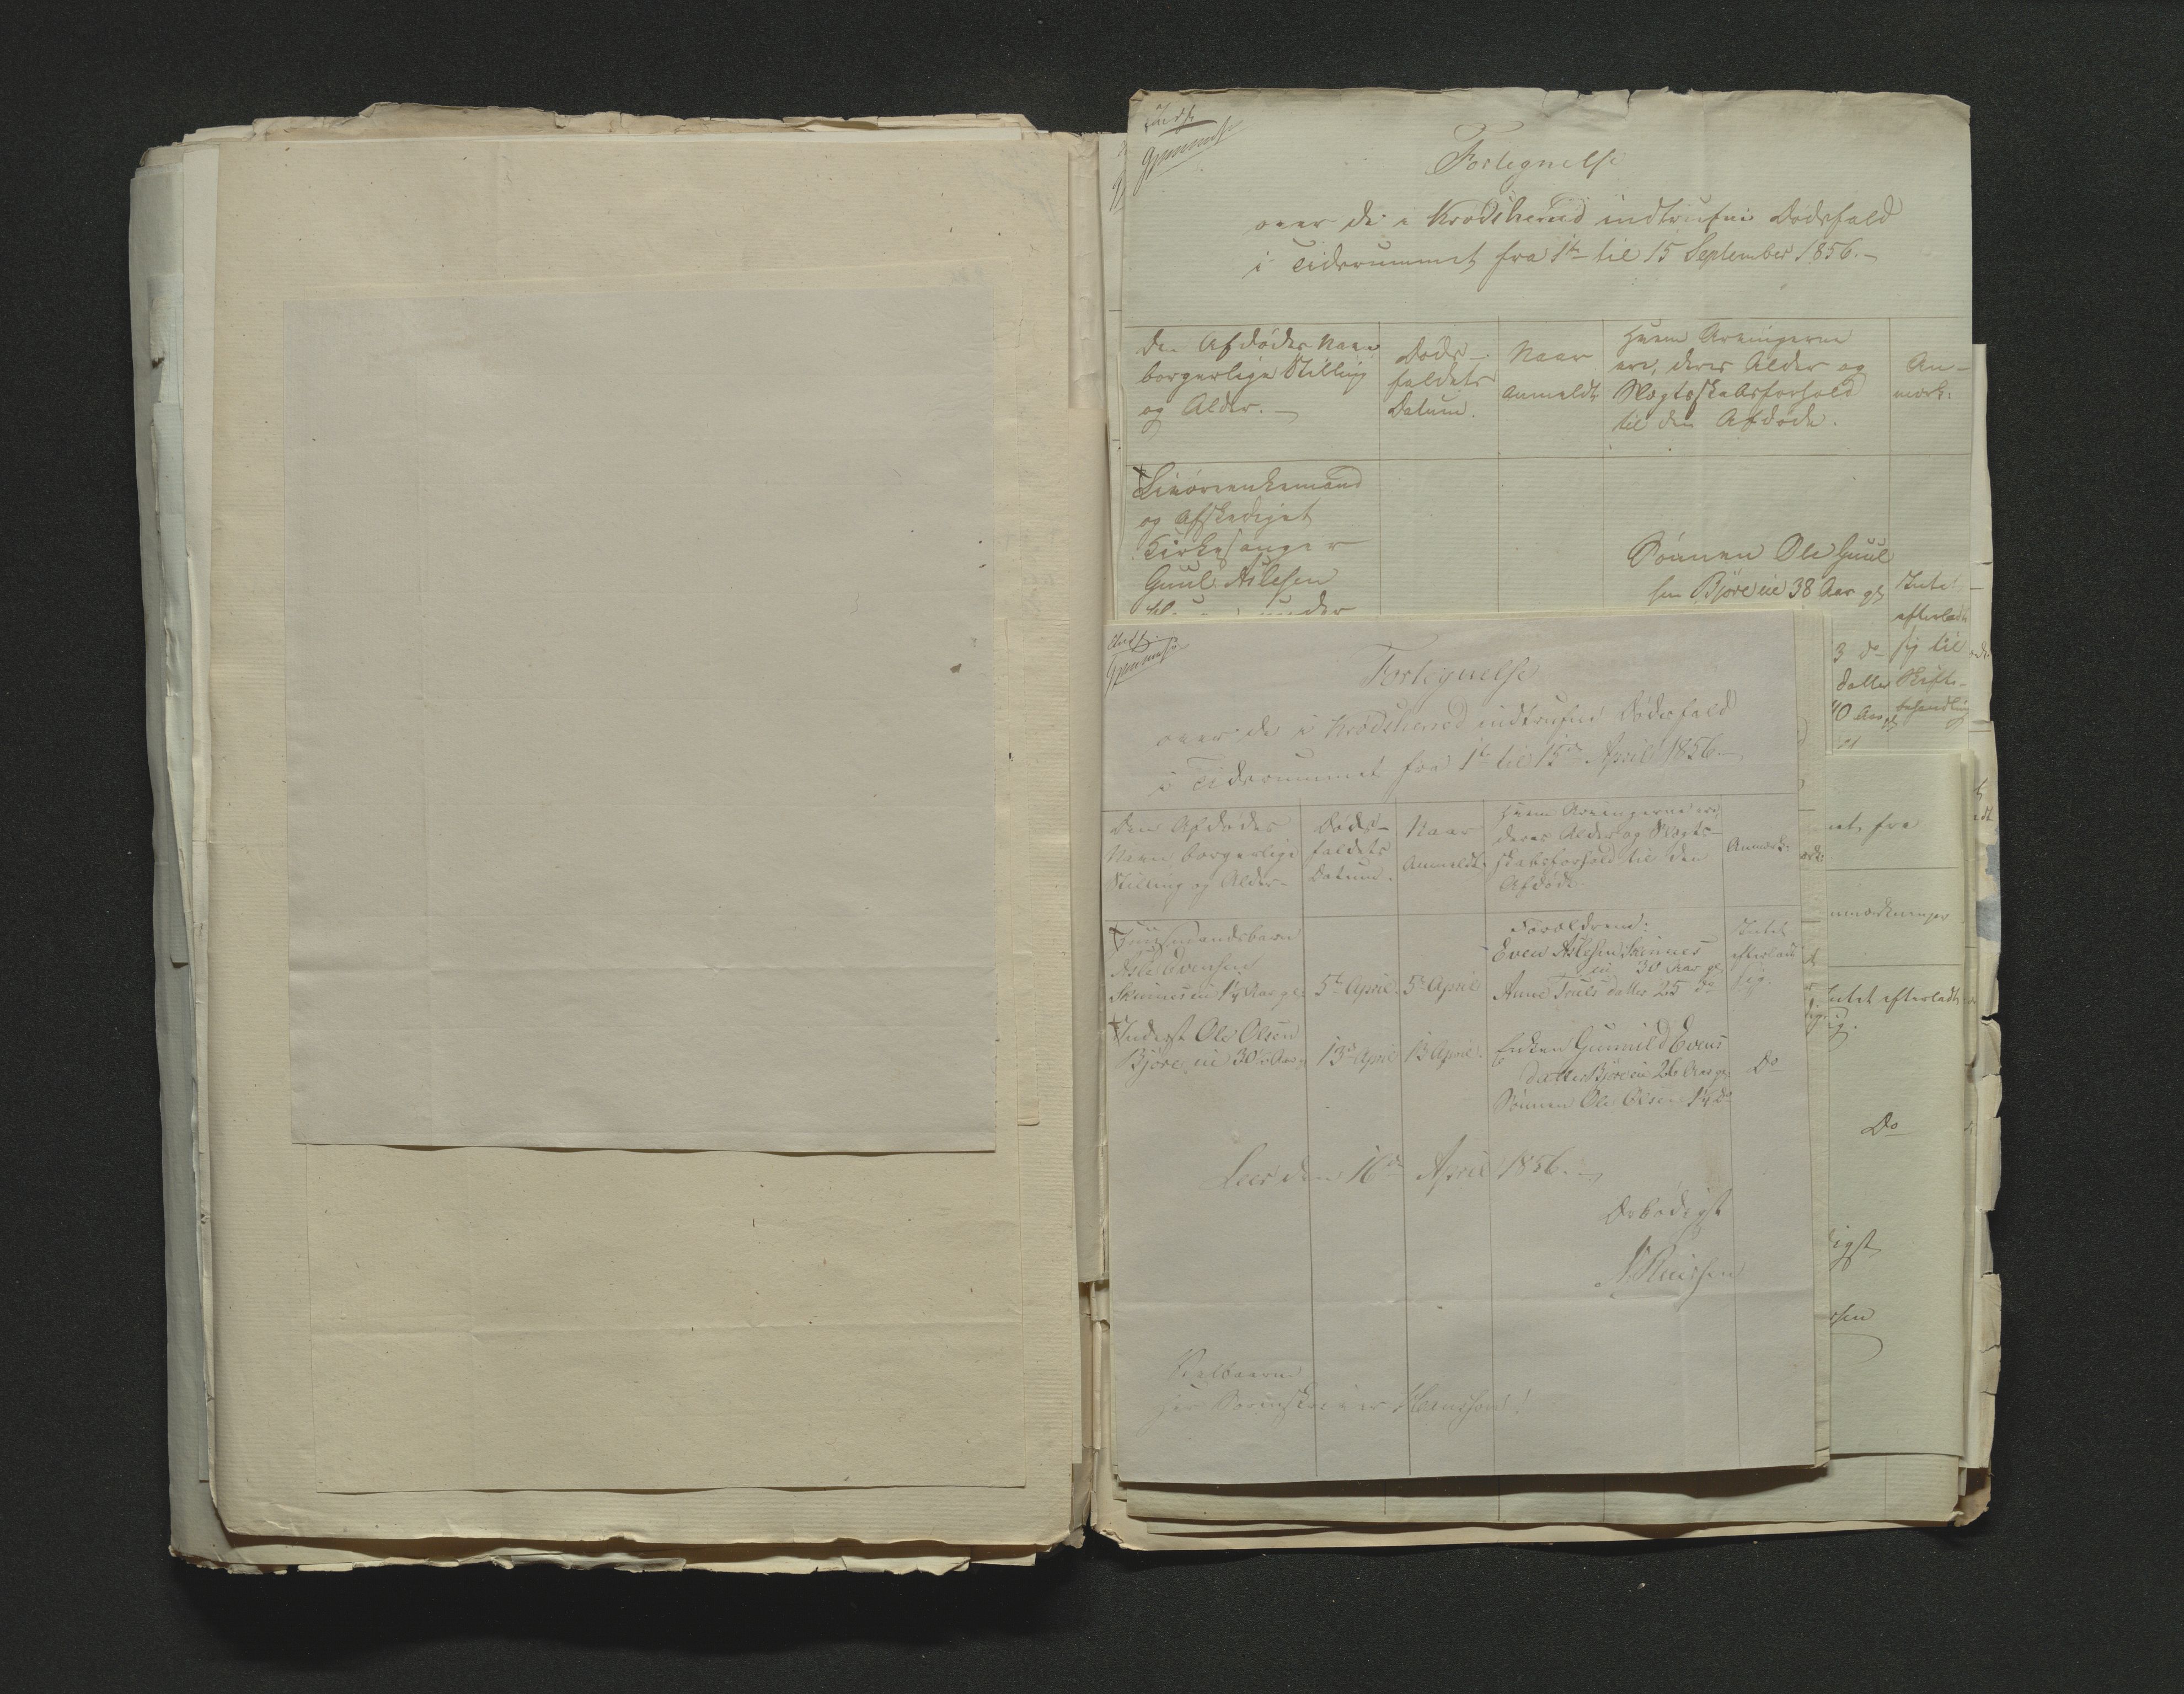 Fortegnelse
over de i Krødsherred indtrufne Dødsfald
i Tidsrummet fra 1te til 15 September 1856.
Den Afdødes Navn
borgerlige Stilling
og Alder.
Døds-
faldets
Datum.
Naar
Anmeldt
Hvem Arvingerne
ere, deres Alder og
Slægtsskabsforhold
til den Afdøde.
An-
mærk:
og Afskediget
Kirkesanger
Guul Aslesen
Sønnen Ole Guul
sen Bjøreeie 38 Aar gl
Intet
efterladt
sig til
Skifte-
behandling
3 do
datter
40 Aar gl
Fortegnelse
over de i Krødsherred indtrufne Dødsfald
i Tidsrummet fra 1te til 15de April 1856.
Den Afdødes
Navn, borgerlige
Stilling og Alder.
Døds-
faldets
Datum.
Naar
Anmeldt.
Hvem Arvingerne ere,
deres Alder og Slægts-
skabsforhold til den
Afdøde.
Anmærk:
Huusmandsbarn
Asle Evensen
5te April
5te April
Forældrene:
Even Aslesen Skinnes
eie 30 Aar gl
Anne Truls datter 25 do
Intet
efterladt
sig.
Inderst Ole Olsen
Bjøre eie 30 Aar gl
13de April
13 April
Enken Gunnild Evens
datter Bjøreeie 26 Aar gl
Sønnen Ole Olsen 1¼ do
Do
Leer den 16de April 1856.
Ærbødigst
Velbaarne
Herr Sorenskriver
et fra
nmærkninger
Intet efterladt
sig.
Do
igst
sen